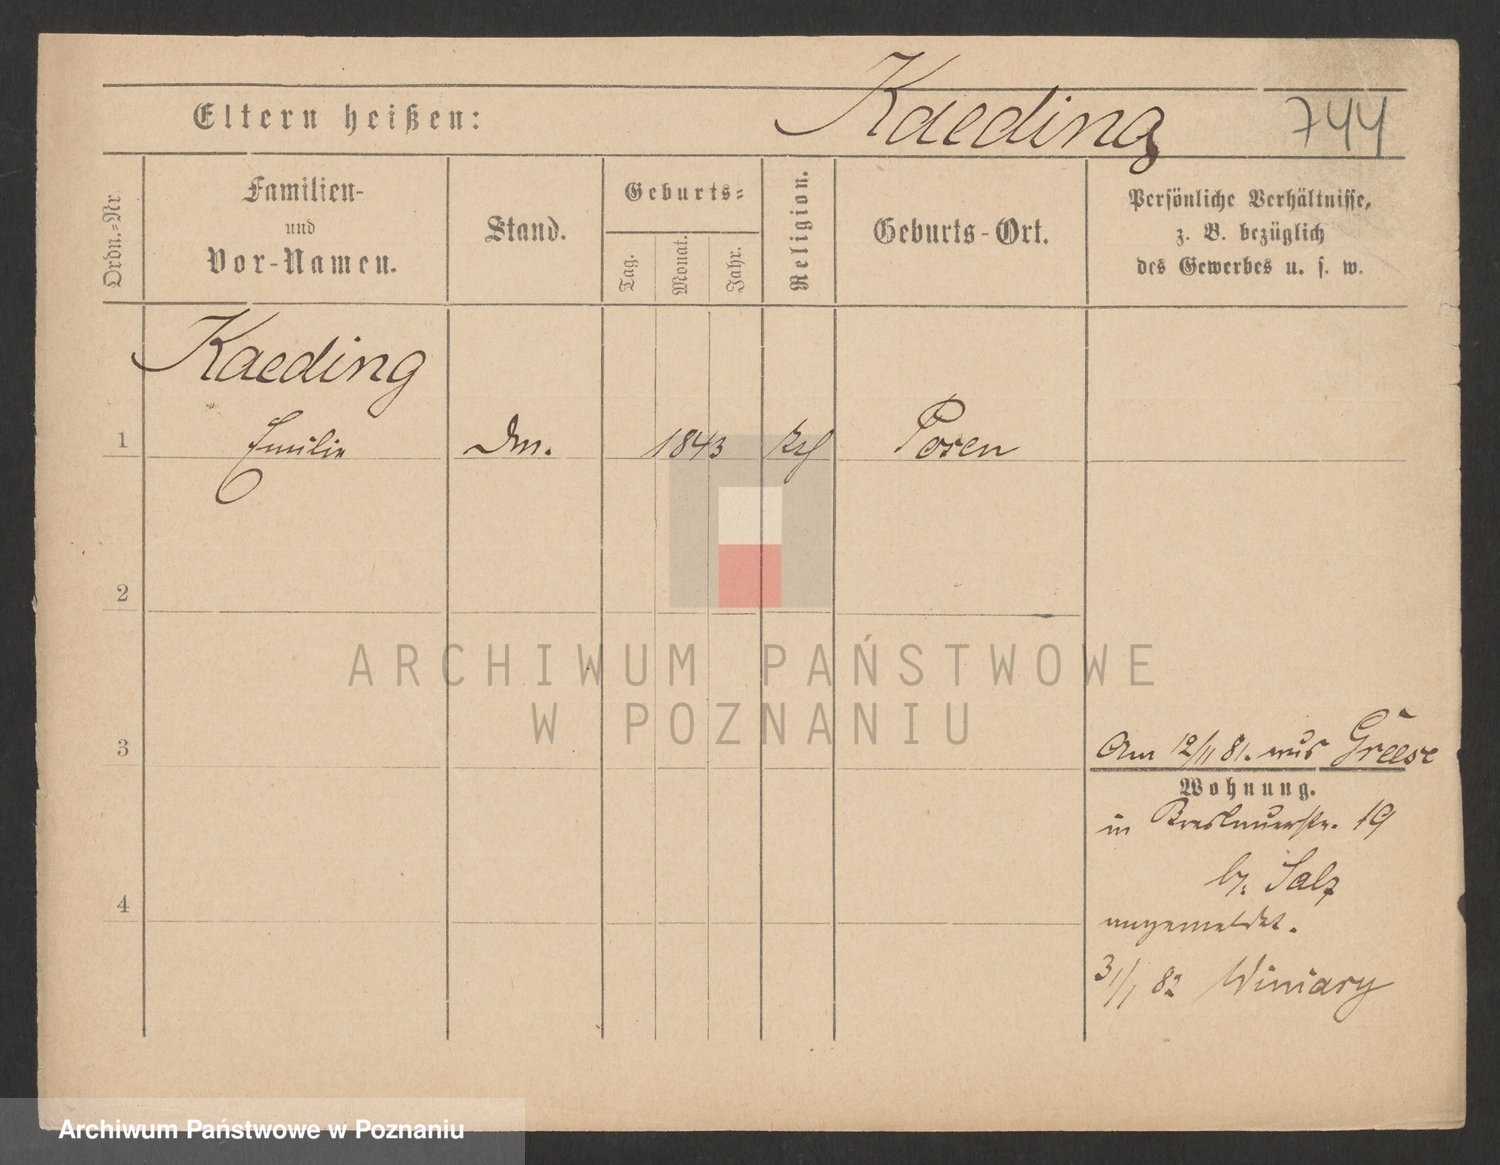 Kaeding
744
Eltern heißen:
Ordn.=Nr.
Familien-
und
Vor-Namen.
Stand.
Geburts=
Tag.
Monat.
Jahr.
Religion.
Geburts-Ort.
Persönliche Verhältnisse,
z. B. bezüglich
des Gewerbes u. s. w.
Kaeding
1
Emilie
1843
Posen
2
ARCHIWUM PAŃSTWOWE
W POZNANIU
3
Am 12/11 81. aus
Wohnung.
in Breslauerstr. 19
b/. Salz
angemeldet.
4
31/1 82 Winiary
Archiwum Państwowe w Poznaniu